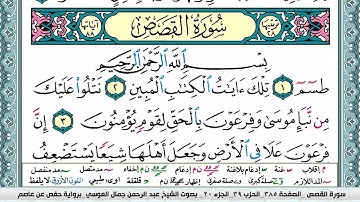 سُورَةُ القَصَصِ
بِسْمِ اللَّهِ الرَّحْمَٰنِ الرَّحِيمِ
طسٓمٓ ١ تِلْكَ ءَايَٰتُ ٱلْكِتَٰبِ ٱلْمُبِينِ ٢ نَتْلُوا۟ عَلَيْكَ
مِن نَّبَإِ مُوسَىٰ وَفِرْعَوْنَ بِٱلْحَقِّ لِقَوْمٍ يُؤْمِنُونَ ٣ إِنَّ
فِرْعَوْنَ عَلَا فِى ٱلْأَرْضِ وَجَعَلَ أَهْلَهَا شِيَعًا يَسْتَضْعِفُ
سورة القصص، الصفحة ٣٨٥، الحزب ٣٩، الجزء ٢٠ بصوت الشيخ عبد الرحمن جمال العوسي، برواية حفص عن عاصم